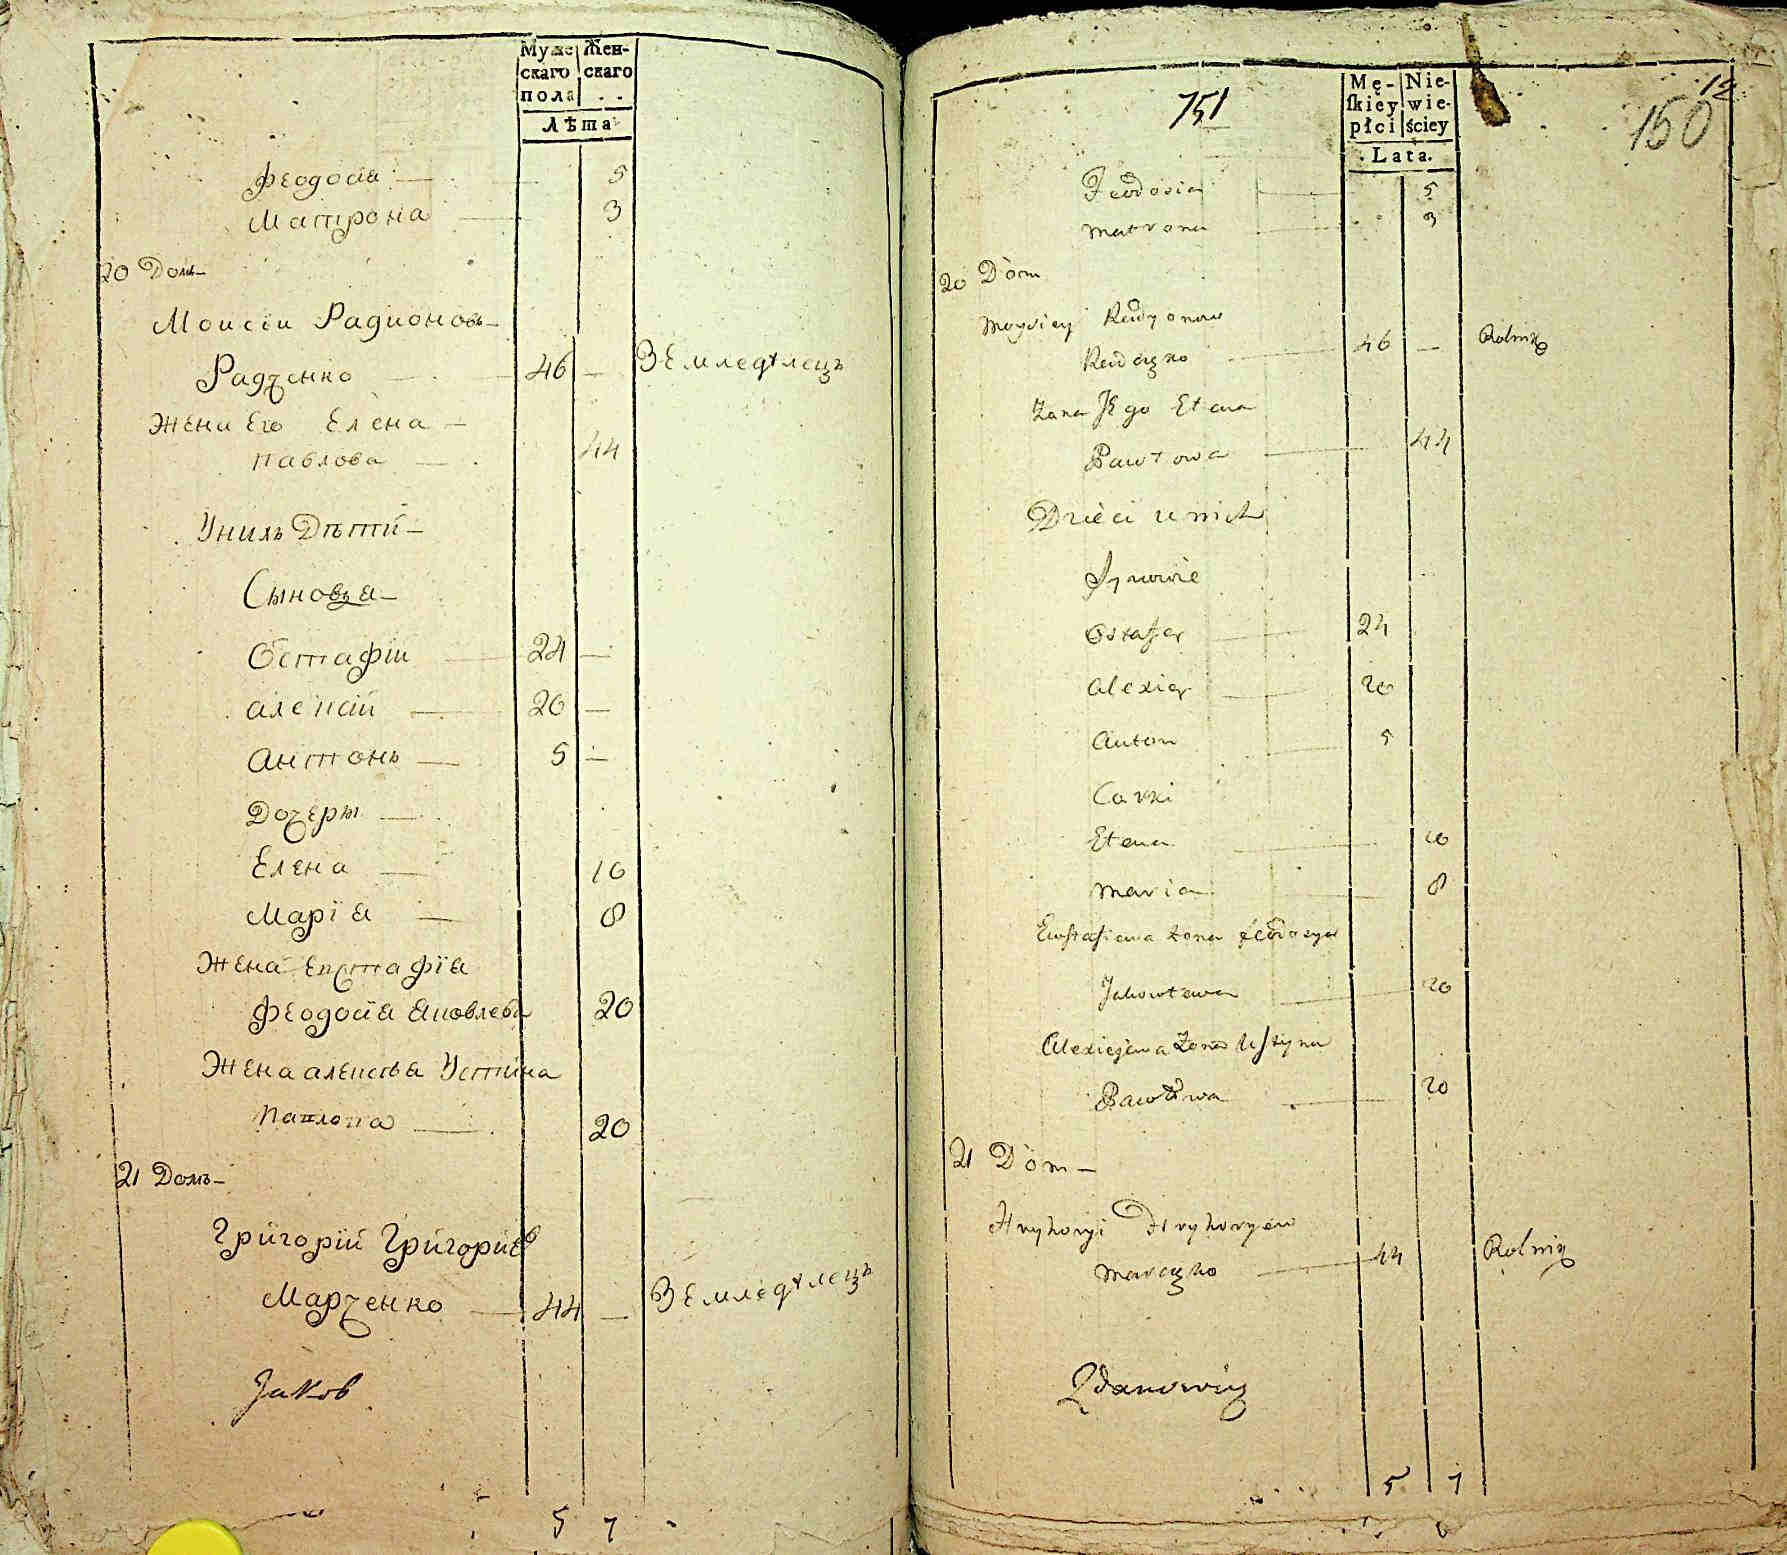 Муже Жен-
скаго скаго
пола
лѣта
Феодосіа 5
Матрона 3
20 Домъ
Моисіи Радионовъ
Радченко 46 — Земледѣлецъ
Жена Его Елена
Павлова 44
Унихъ Дѣти
Сыновья
Остафіи 24 —
алексій 20 —
антонъ 5 —
Дочеры
Елена 10
Маріа 8
Жена Евстафіа
Феодосіа аковлева 20
Жена алексѣа Устина
Павлова 20
21 Домъ
Григорій Григориевъ
Марченко 44 — Земледѣлецъ
Jakob
5 7
751
12
150
Mę- Nie-
ſkiey wie-
płci ściey
Lata.
Feodosia 5
Matrona 3
20 Dom
Moysiey Radyonow
Radczko 46 — Rolnik
Zona Jego Elena
Pawłowa 44
Dzieci u nich
Synowie
Ostafiey 24
Alexiey 20
Anton 5
Corki
Elena 10
Maria 8
Ewstafiewa zona Feodosya
Jakowlewa 20
Alexiejewa Zona Ustyna
Pawłowa 20
21 Dom
Hryhoryi Hryhoryew
Marczko 44 Rolnik
Zdanowicz
5 7